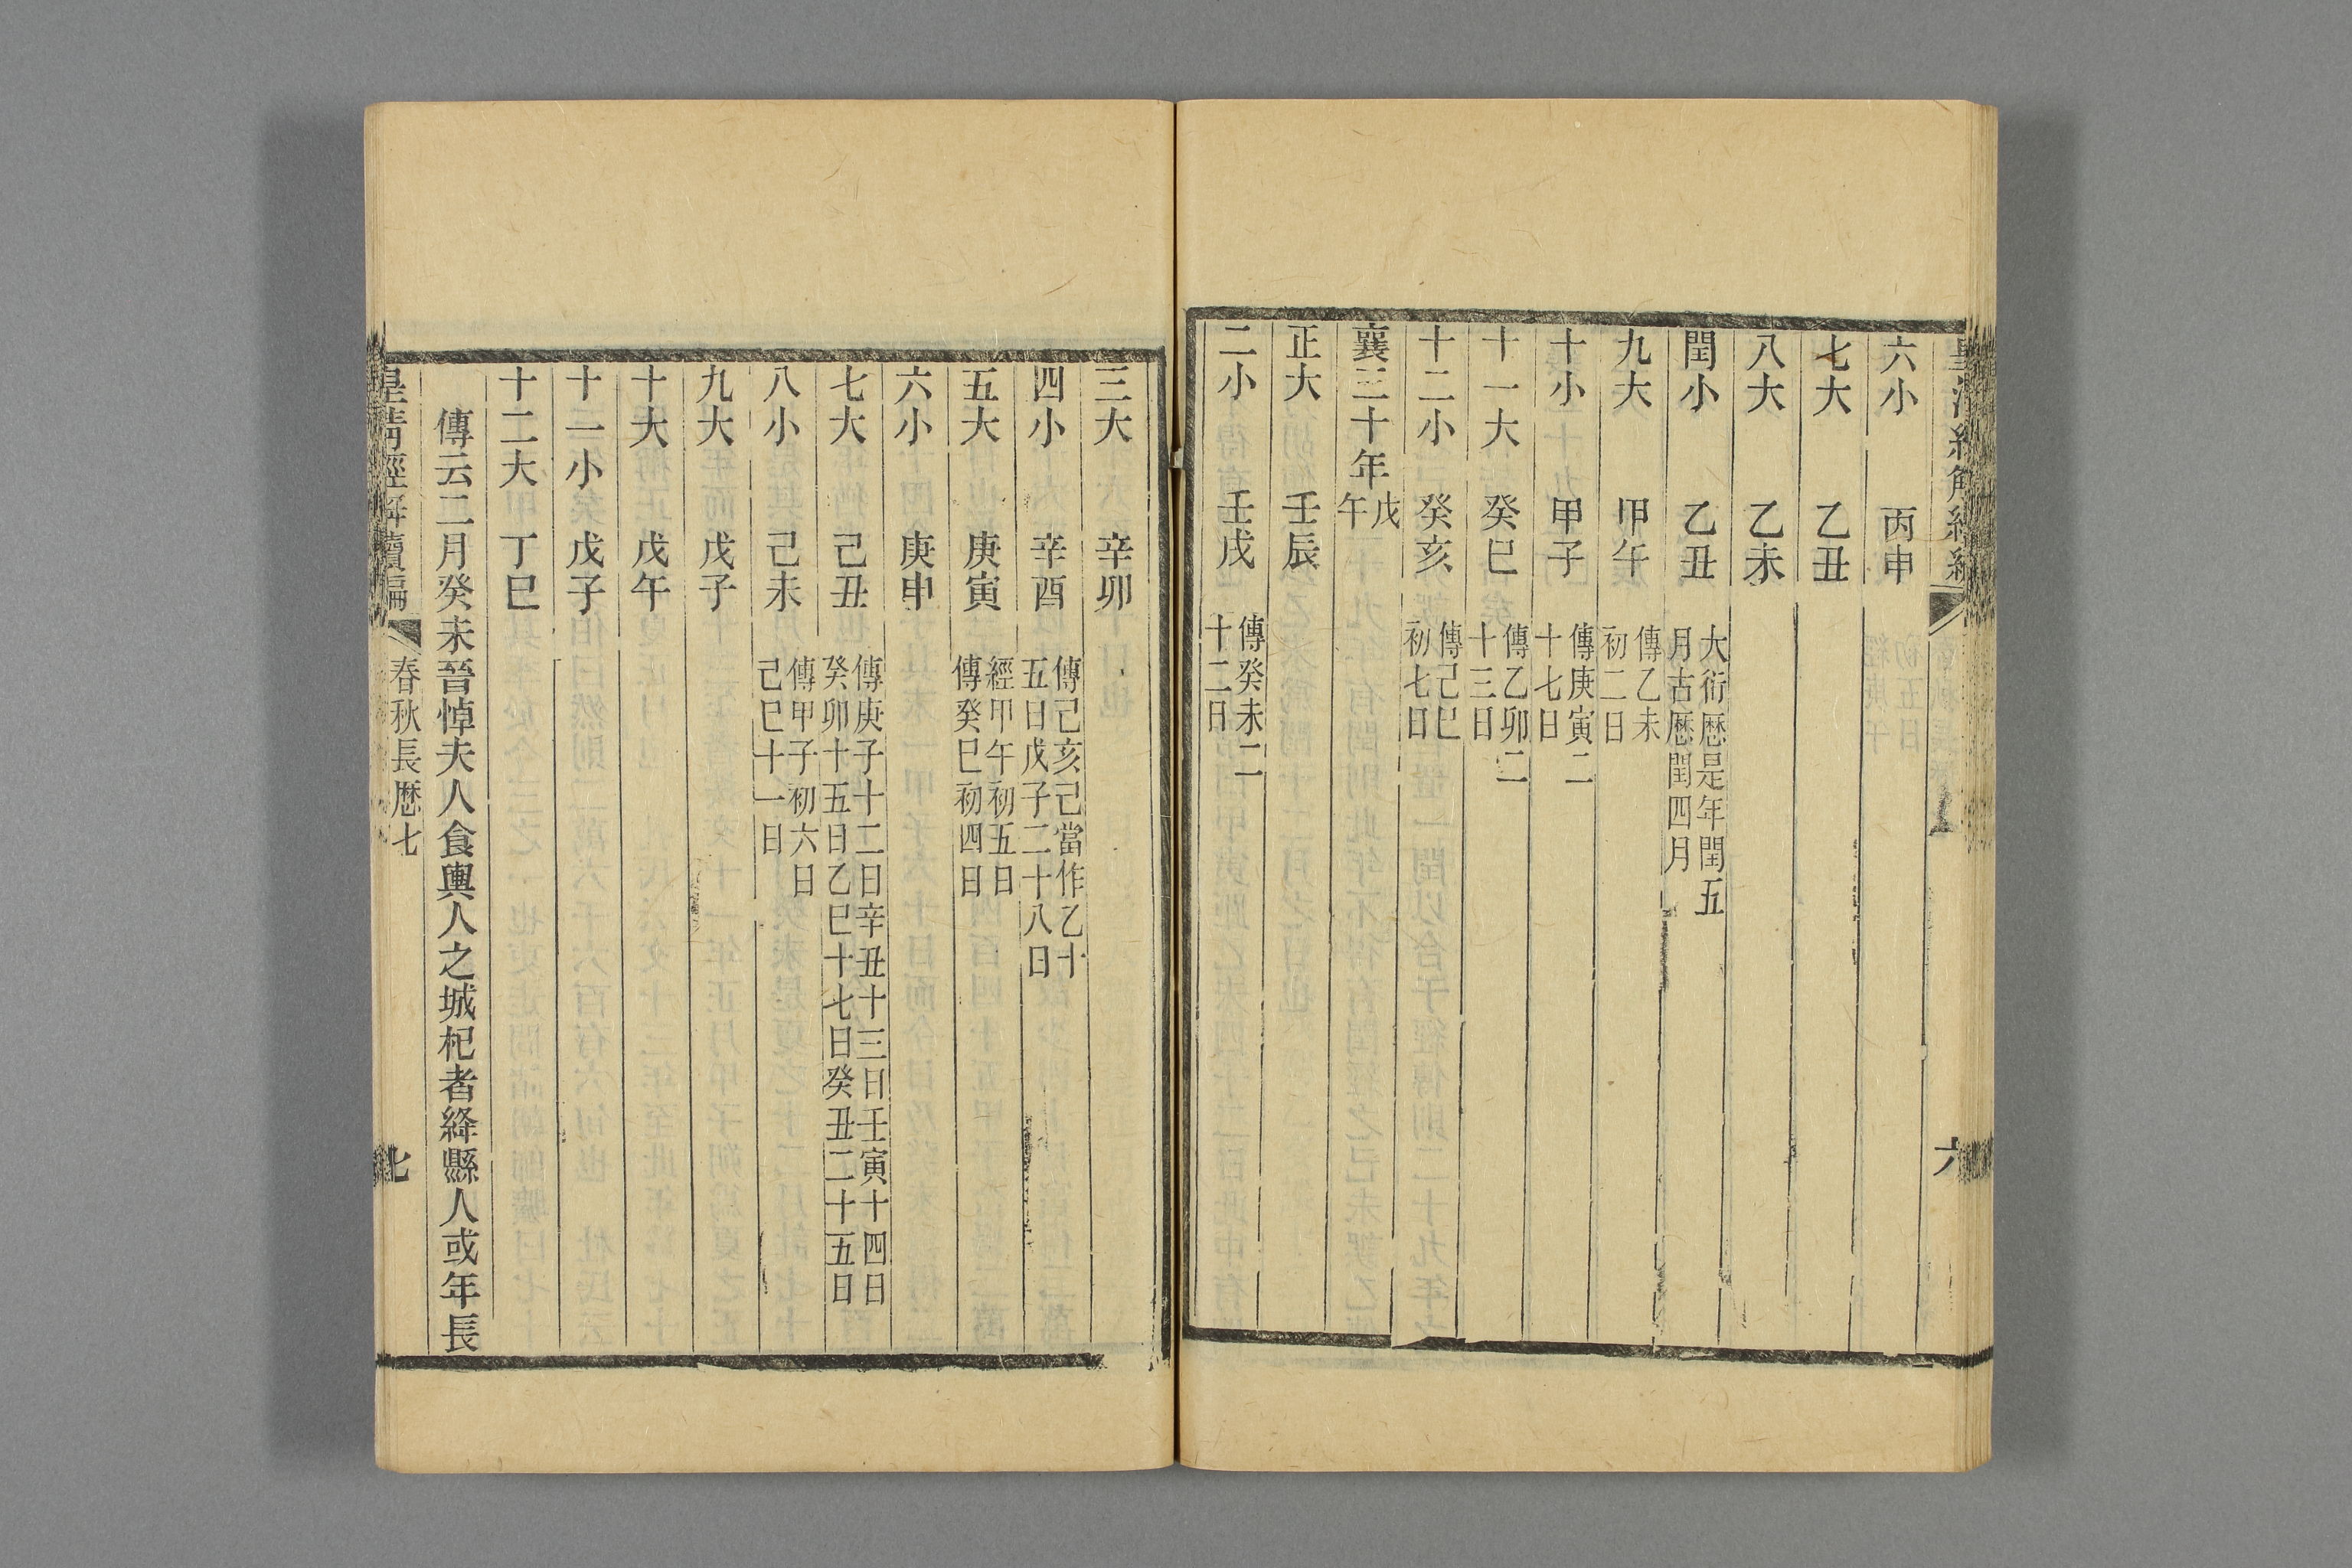 六小　丙申
七大　乙丑
八大　乙未
閏小　乙丑　大衍厯是年閏五
月古厯閏四月
九大　甲午　傳乙未
初二日
十小　甲子　傳庚寅二
十七日
十一大　癸巳　傳乙卯二
十三日
十二小　癸亥　傳己巳
初七日
襄三十年　戊
午
正大　壬辰
二小　壬戌　傳癸未二
十二日
六
三大　辛卯
四小　辛酉　傳己亥己當作乙十
五日戊子二十八日
五大　庚寅　經甲午初五日
傳癸巳初四日
六小　庚申
七大　己丑　傳庚子十二日辛丑十三日壬寅十四日
癸卯十五日乙巳十七日癸丑二十五日
八小　己未　傳甲子初六日
己巳十一日
九大　戊子
十大　戊午
十一小　戊子
十二大　丁巳
傳云二月癸未晉悼夫人食輿人之城杞者絳縣人或年長
皇淸經解續編　春秋長厯七　七